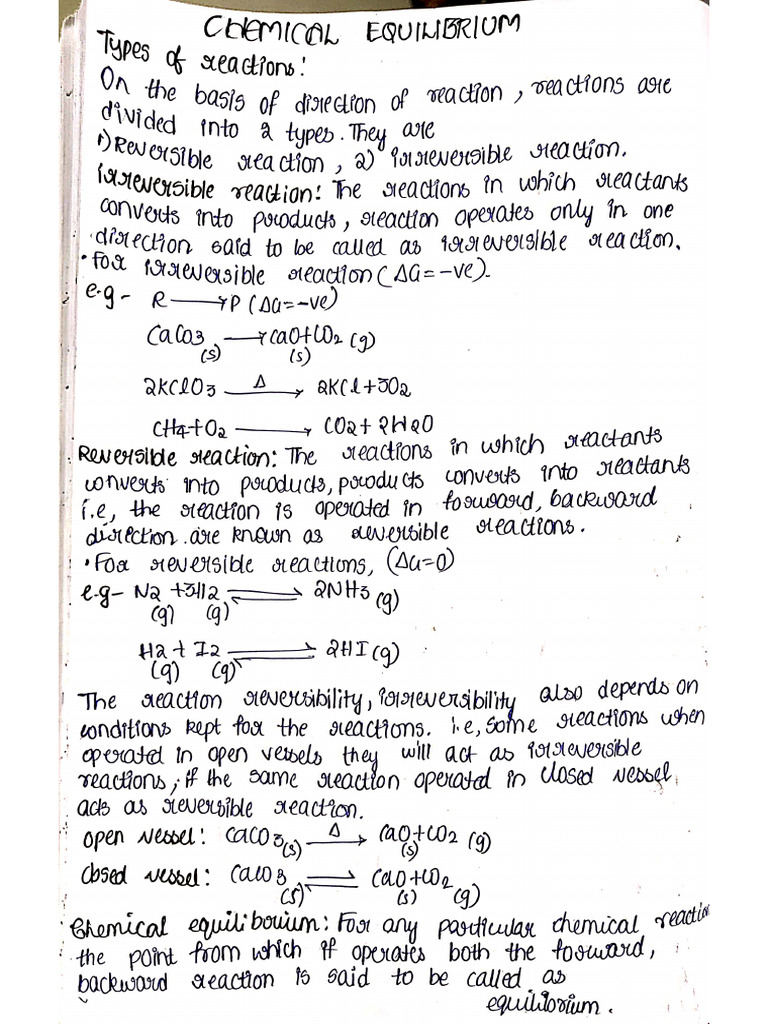 CHEMICAL EQUILIBRIUM
Types of reactions:
On the basis of direction of reaction, reactions are
divided into 2 types. They are
1) Reversible reaction, 2) irreversible reaction.
irreversible reaction: The reactions in which reactants
converts into products, reaction operates only in one
direction said to be called as irreversible reaction.
• For irreversible reaction (ΔG = -ve).
e.g - R ⟶ P (ΔG = -ve)
CaCO3 (s) ⟶ CaO (s) + CO2 (g)
2KClO3 —Δ→ 2KCl + 3O2
CH4 + O2 ⟶ CO2 + 2H2O
Reversible reaction: The reactions in which reactants
converts into products, products converts into reactants
i.e, the reaction is operated in forward, backward
direction are known as reversible reactions.
• For reversible reactions, (ΔG = 0)
e.g - N2 (g) + 3H2 (g) ⇌ 2NH3 (g)
H2 (g) + I2 (g) ⇌ 2HI (g)
The reaction reversibility, irreversibility also depends on
conditions kept for the reactions. i.e, some reactions when
operated in open vessels they will act as irreversible
reactions, if the same reaction operated in closed vessel
acts as reversible reaction.
open vessel: CaCO3 (s) —Δ→ CaO (s) + CO2 (g)
closed vessel: CaCO3 (s) ⇌ CaO (s) + CO2 (g)
Chemical equilibrium: For any particular chemical reaction
the point from which if operates both the forward,
backward reaction is said to be called as
equilibrium.